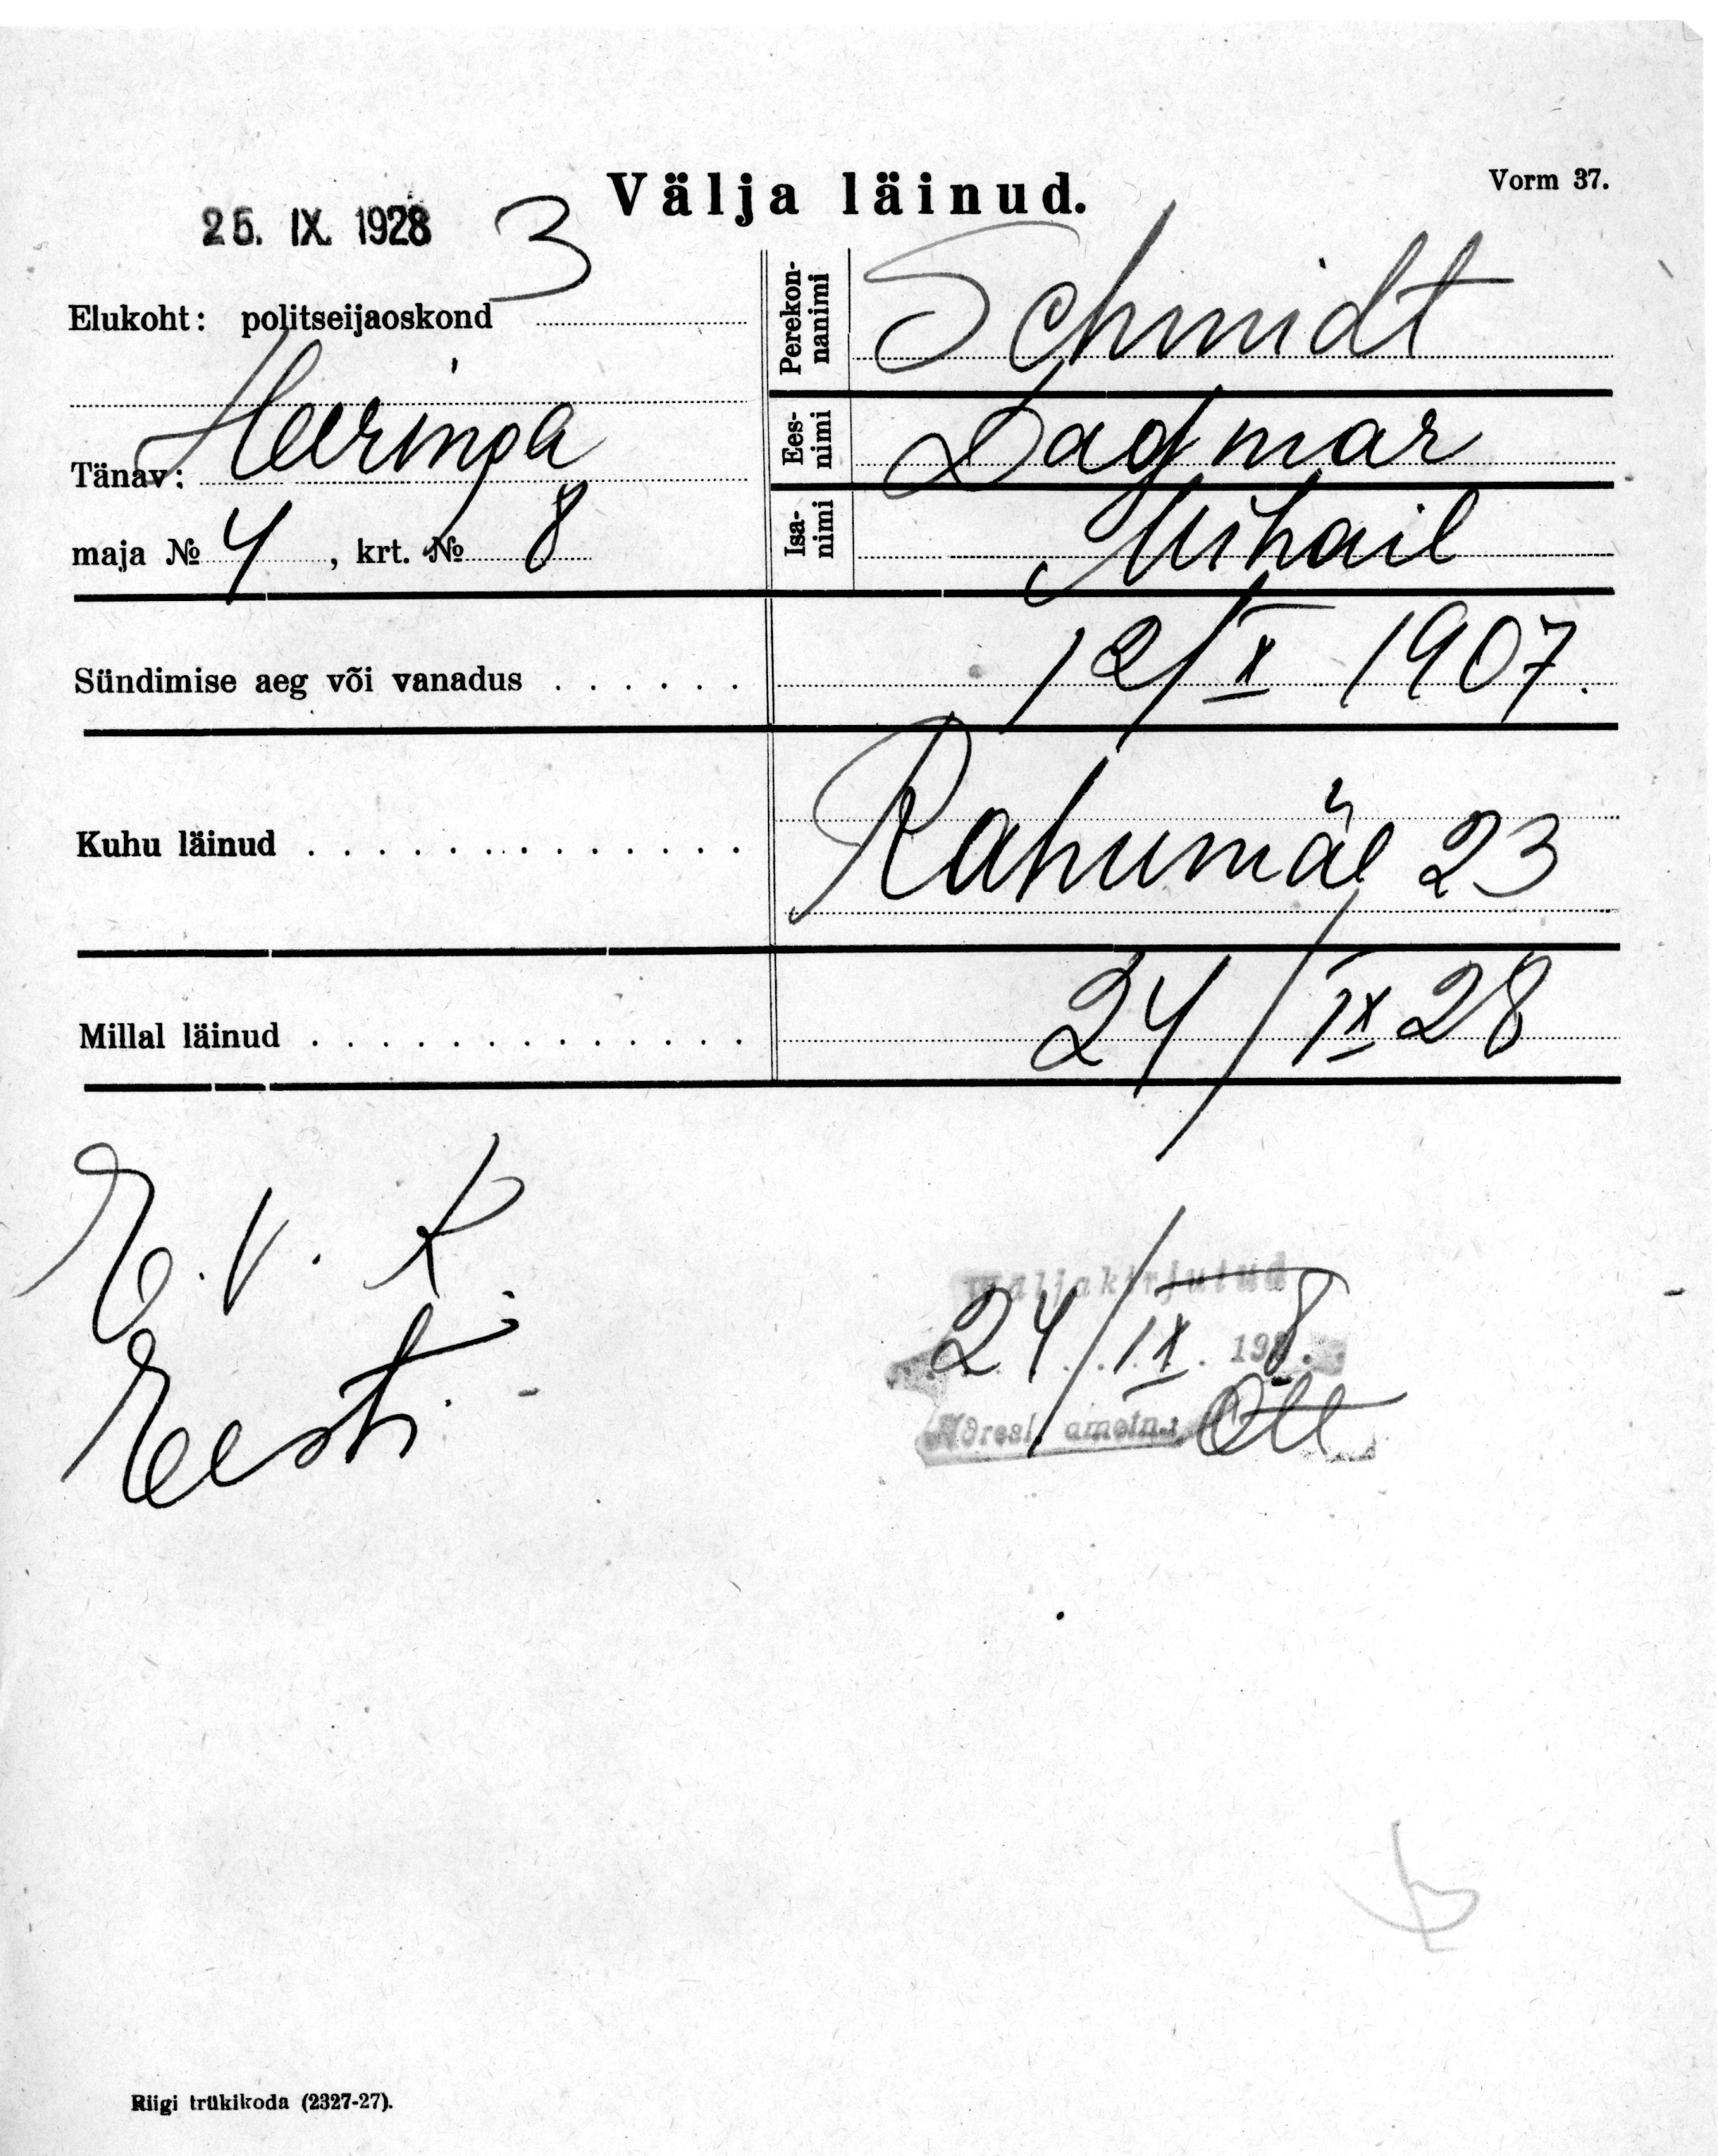 Välja läinud.
Vorm 37.
25. IX. 1928
Elukoht: politseijaoskond 3
Tänav: Heeringa
maja № 4, krt. № 8
Perekonnanimi Schmidt
Eesnimi Dagmar
Isanimi Mihail
Sündimise aeg või vanadus . . . . . . 12/X 1907.
Kuhu läinud . . . . . . . . . . . . . Rahumäe 23
Millal läinud . . . . . . . . . . . . . 24/IX 28
E. V. K.
Eesti
Väljakirjutud
24/IX 1928.
Adresl. ametn. Ott
Riigi trükikoda (2327-27).